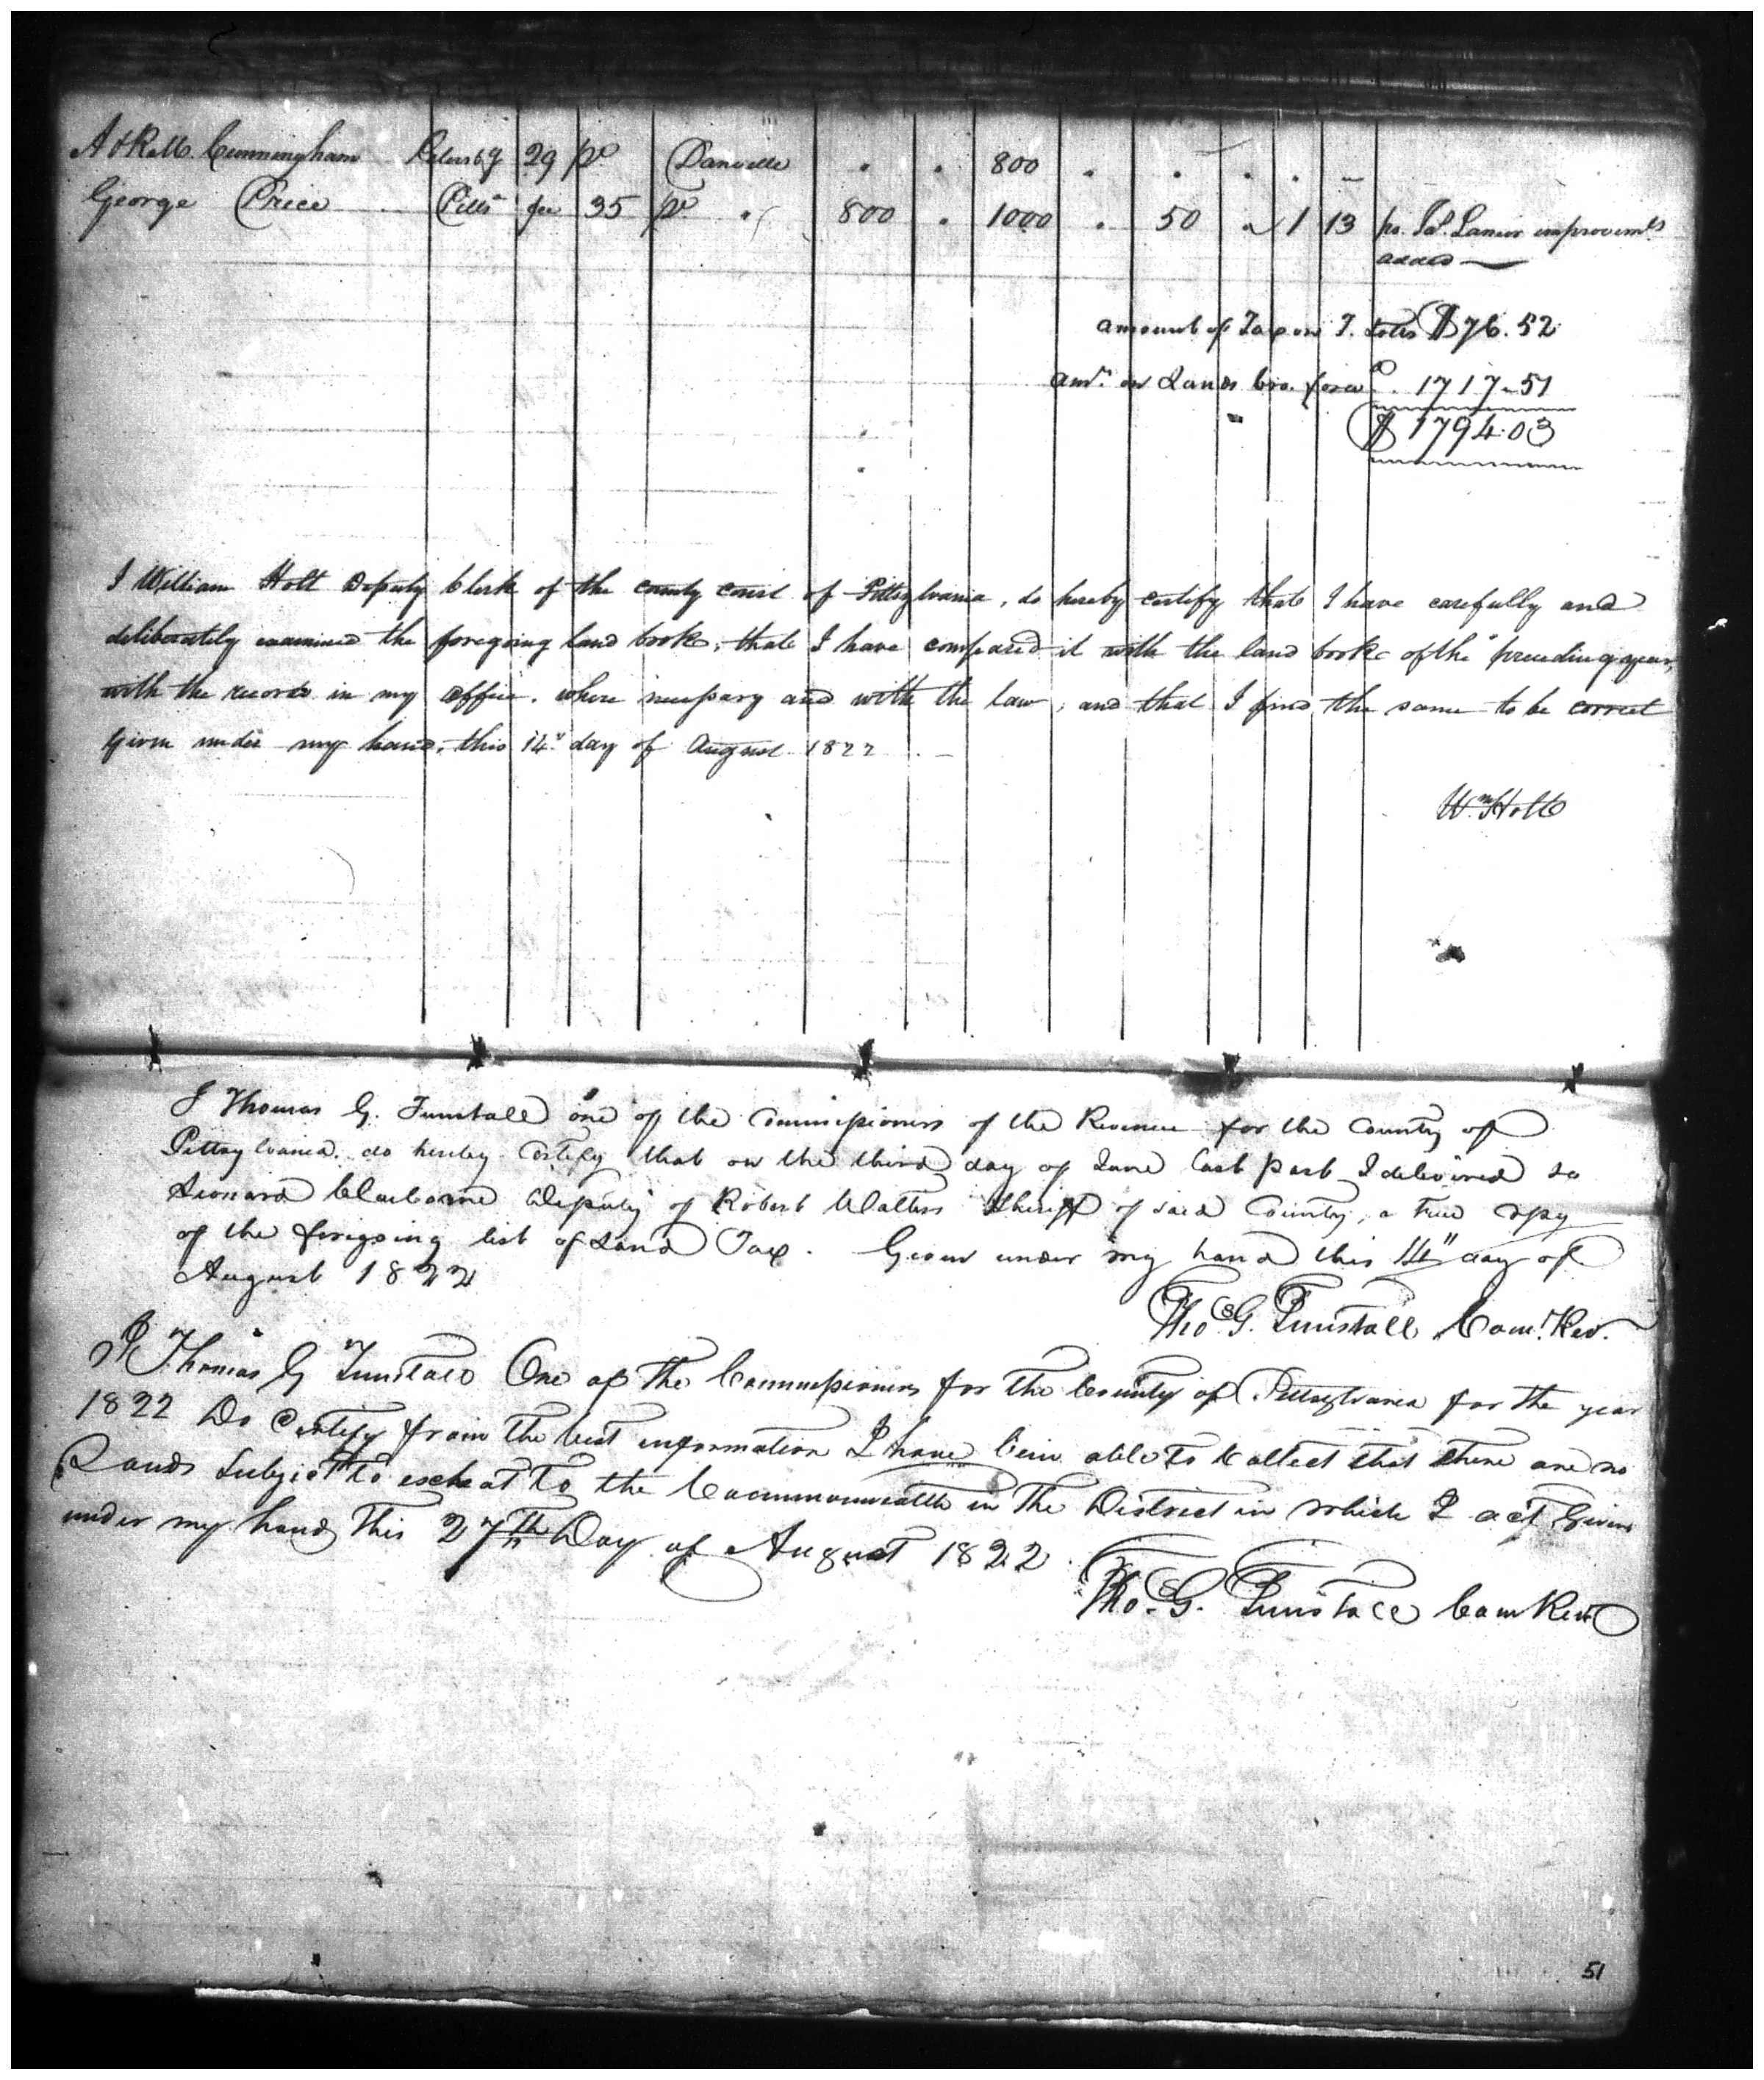 A & Ro. Cunningham Petersbg 29 po Danville 800
George Price Pitts fee 35 po " 800 1000 50 1 13 po. Js. Lanier improvemts
added
amount of Tax on T. Lotts $76.52
amt. on Lands bro. forwd. 1717.51
$1794.03
I William Holt Deputy Clerk of the county court of Pittsylvania, do hereby certify that I have carefully and
deliberately examined the foregoing land book, that I have compared it with the land book of the preceding year,
with the records in my office, where necessary and with the law, and that I find the same to be correct
Given under my hand, this 14" day of August 1822
Wm Holt
I Thomas G. Tunstall one of the Commissioners of the Revenue for the County of
Pittsylvania, do hereby Certify that on the third day of June last past I delivered to
Leonard Claiborne Deputy of Robert Walters Sheriff of said County, a true Copy
of the foregoing list of Land Tax. Given under my hand this 14" day of
August 1822
Thos. G. Tunstall Com. Rev.
I Thomas G Tunstall One of the Commissioners for the County of Pittsylvania for the year
1822 Do Certify from the best information I have been able to Collect that there are no
Lands Subject to escheat to the Commonwealth in the District in which I act Given
under my hand This 27th Day of August 1822.
Thos. G. Tunstall Com Rev
51